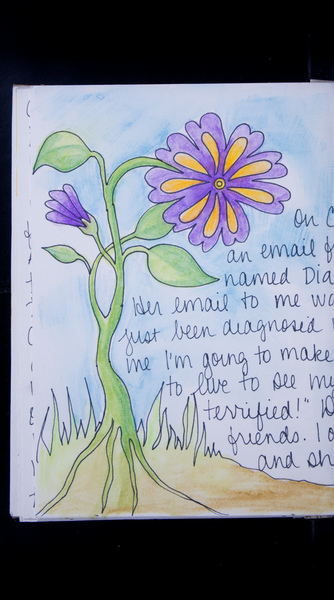 On
an email
named
Her email to me
just been diagnosed
me I'm going to make
to live to see my
terrified!"
friends. I
and sh